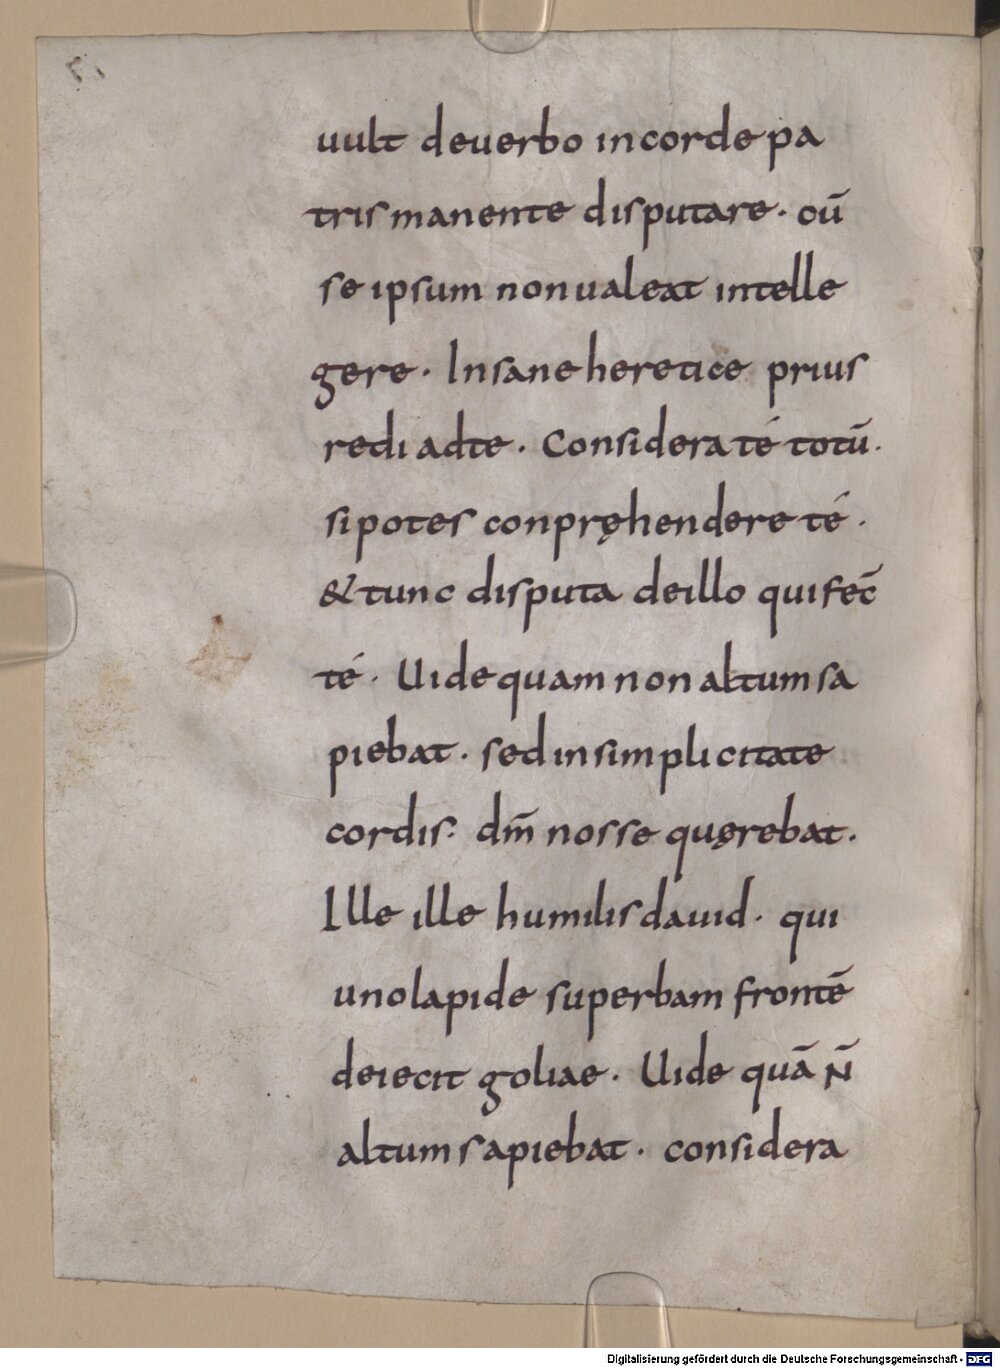 uult deuerbo incorde pa
tris manente disputare · cū
se ipsum nonualeat intelle
gere · Insane heretice prius
redi adte · Considera té totū ·
si potes conpręhendere té ·
& tunc disputa deillo qui fec̄
té · Uide quam non altum sa
piebat · sed insimplicitate
cordis · dm̄ nosse quęrebat ·
Ille ille humilis dauid · qui
uno lapide superbam frontē
deiecit goliae · Uide quā N̄
altum sapiebat · considera
Digitalisierung gefördert durch die Deutsche Forschungsgemeinschaft - DFG